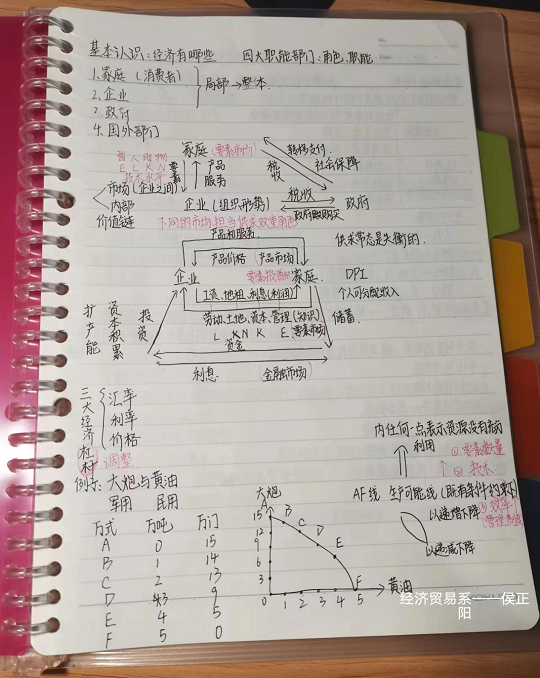 基本认识：经济有哪些 四大职能部门：角色、职能
1.家庭（消费者）
2.企业
局部→整本
3.政府
4.国外部门
家庭（要素市场） 转移支付
社会保障
E L K N
技术水平
要素
产品
服务
税收
市场（企业之间）
内部
价值链
企业（组织形势） 税收 政府
政府购买
不同的市场担当供求双重角色
产品和服务
供求常态是失衡的.
产品价格（产品市场）
企业 要素报酬 家庭. DPI
个人可分配收入
工资、地租、利息（利润）
劳动、土地、资本、管理（知识）
L K N K E 要素市场
储蓄
资金
扩产能
资本积累
投资
利息 金融市场
三大经济杠杆
汇率
利率
价格
调整
例子：大炮与黄油
军用 民用
方式 万吨 万门
A 0 15
B 1 14
C 2 13
D 3 9
E 4 5
F 5 0
大炮
15 A B
12 C
9 D
6 E
3
0 1 2 3 4 5 F 黄油
内任何一点表示资源没有充动
利用
①要素数量
②技术
AF线 生产可能线（既有条件约束下）
以递增下降
以递减下降
经济贸易系——侯正
阳